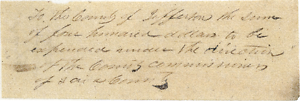 To the County of Jefferson the sum
of four hundred dollars to be
expended under the direction
of the County commissioners
of said County